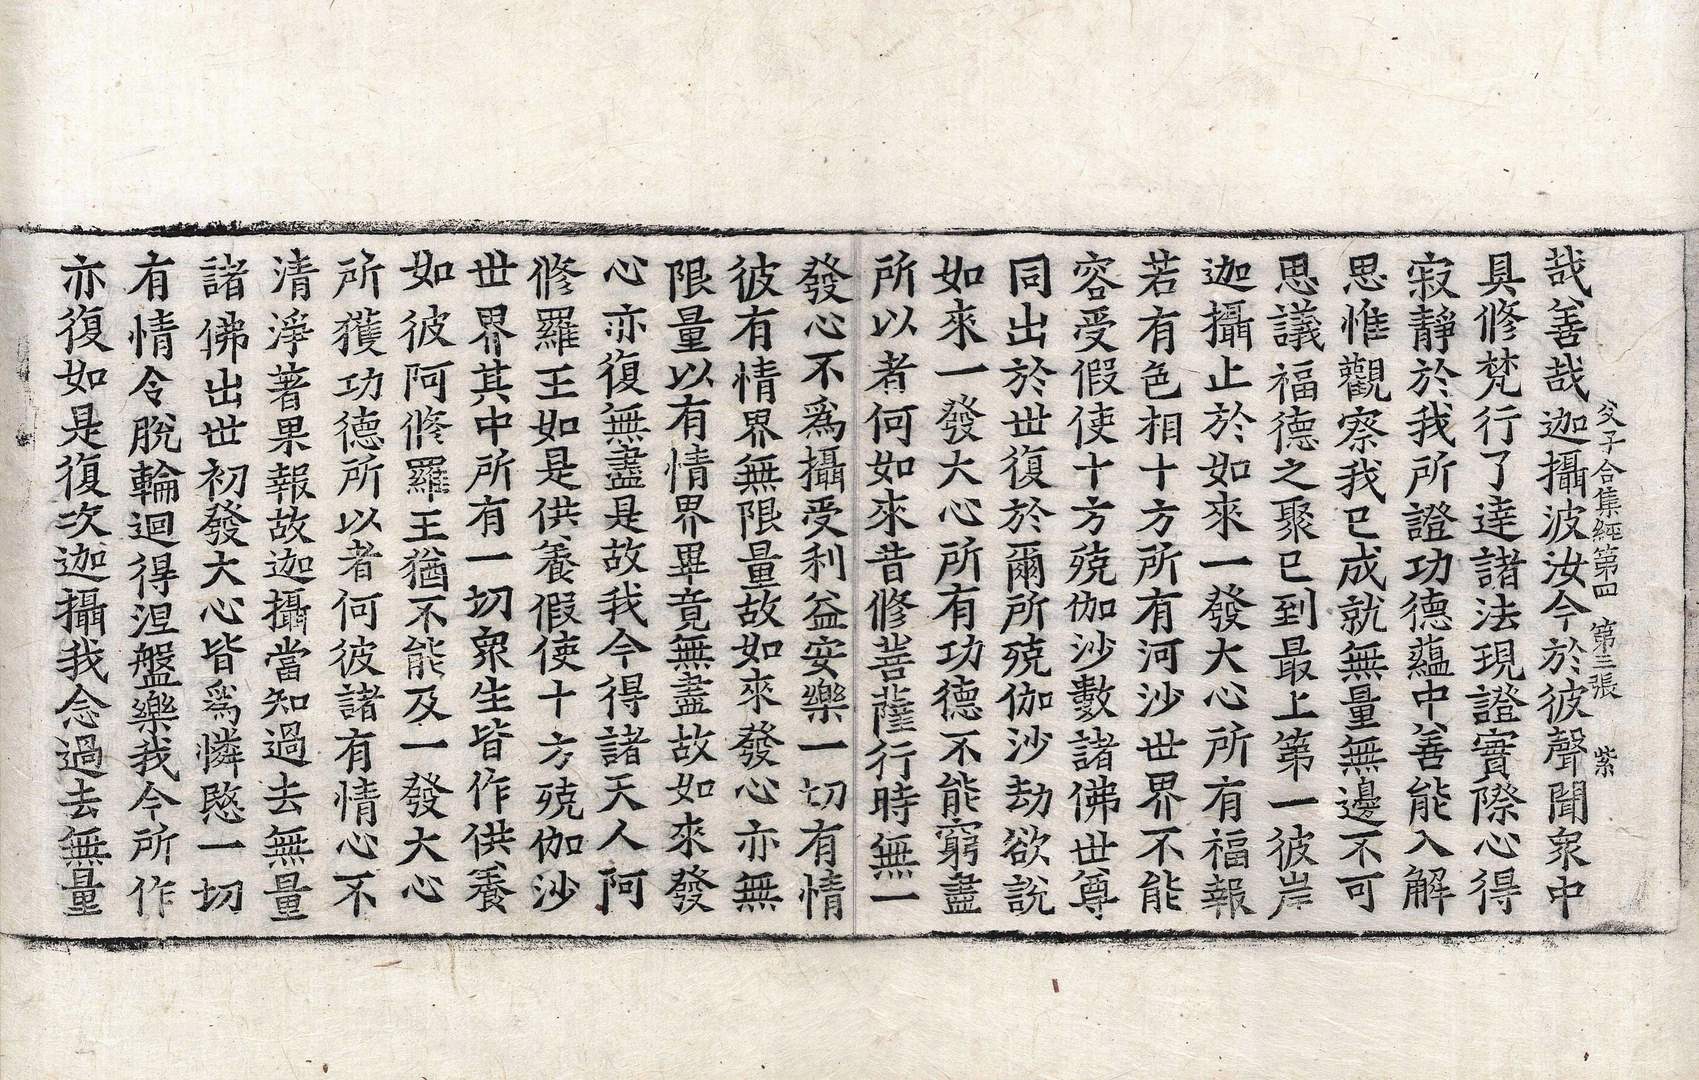 父子合集經第四　第三張　紫
哉善哉迦攝波汝今於彼聲聞衆中
具修梵行了達諸法現證實際心得
寂靜於我所證功德蘊中善能入解
思惟觀察我已成就無量無邊不可
思議福德之聚已到最上第一彼岸
迦攝止於如來一發大心所有福報
若有色相十方所有河沙世界不能
容受假使十方殑伽沙數諸佛世尊
同出於世復於爾所殑伽沙劫欲說
如來一發大心所有功德不能窮盡
所以者何如來昔修菩薩行時無一
發心不爲攝受利益安樂一切有情
彼有情界無限量故如來發心亦無
限量以有情界畢竟無盡故如來發
心亦復無盡是故我今得諸天人阿
修羅王如是供養假使十方殑伽沙
世界其中所有一切衆生皆作供養
如彼阿修羅王猶不能及一發大心
所獲功德所以者何彼諸有情心不
清淨著果報故迦攝當知過去無量
諸佛出世初發大心皆爲憐愍一切
有情令脫輪迴得涅盤樂我今所作
亦復如是復次迦攝我念過去無量